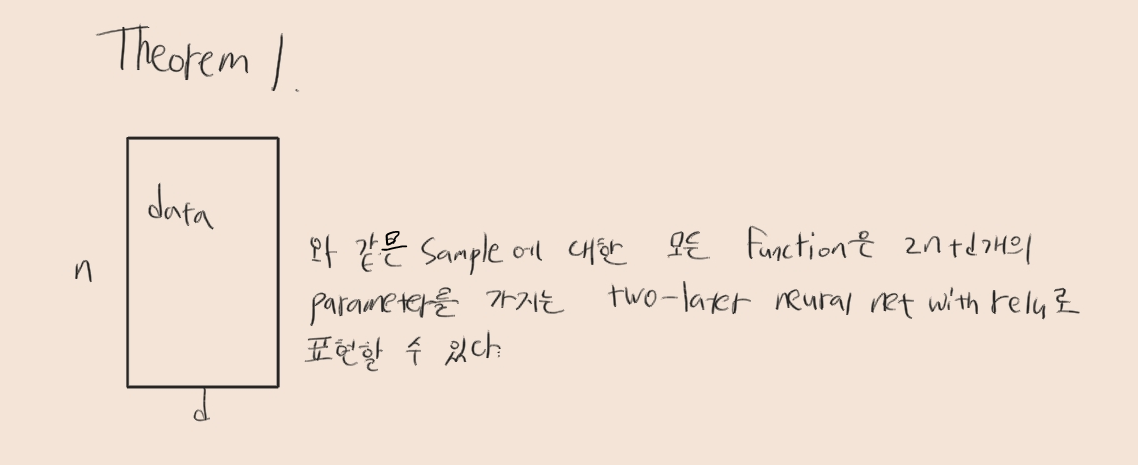 Theorem 1.
data
n
와 같은 Sample에 대한 모든 Function은 2n+d개의
parameter를 가지는 two-later neural net with relu로
표현할 수 있다.
d